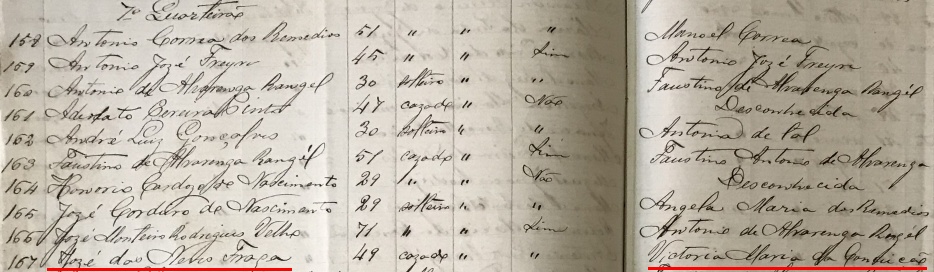 7º Quarteirão
158 Antonio Correa dos Remedios 51 " " " Manoel Correa
159 Antonio Jozé Freyre 45 " " Sim Antonio Jozé Freyre
160 Antonio de Alvarenga Rangel 30 solteiro " " Faustino de Alvarenga Rangel
161 Pinto 47 cazado " Não Desconhecida
162 André Luiz Gonçalves 30 solteiro " " Antonia de Tal
163 Faustino de Alvarenga Rangel 51 cazado " Sim Faustino Antonio de Alvarenga
164 Cardozo de Nascimento 29 " " Não Desconhecida
165 Jozé Corduro de Nascimento 29 solteiro " " Angela Maria dos Remedios
166 Jozé Monteiro Rodrigues Velho 71 " " Sim Antonio de Alvarenga Rangel
167 Jozé das Fraga 49 cazado " " Victoria Maria da Conceição